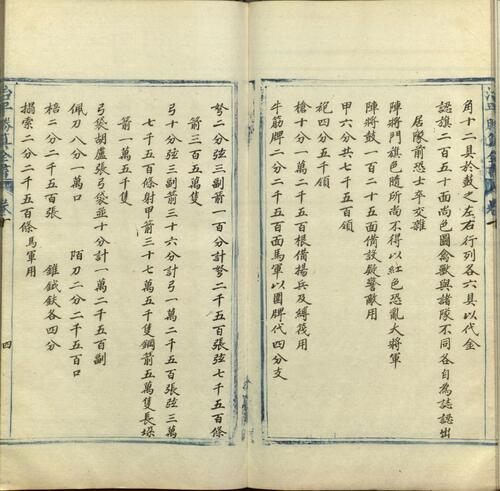 角十二具於鼓之左右行列各六具以代金
認旗二百五十面尚色圖禽獸與諸隊不同各自為誌認出
居隊前恐士卒交雜
陣將門旗色隨所尚不得以紅色恐亂大將軍
陣將鼓一百二十五面備設嚴警敵用
甲六分共七千五百領
袍四分五千領
槍十分一萬二千五百根備揚兵及縛筏用
牛筋牌二分二千五百面馬軍以團牌代四分支
弩二分弦三副箭一百分計弩二千五百張弦七千五百條
箭三百五萬隻
弓十分弦三副箭三十六分計弓一萬二千五百張弦三萬
七千五百條射甲箭三十七萬五千隻鋼箭五萬隻長垜
箭一萬五千隻
弓袋胡盧張弓袋並十分計一萬二千五百副
佩刀八分一萬口 陌刀二分二千五百口
棓二分二千五百張 錐鉞鈇各四分
搨索二分二千五百條馬軍用
治平勝算全書 卷十 四
治平勝算全書 卷十